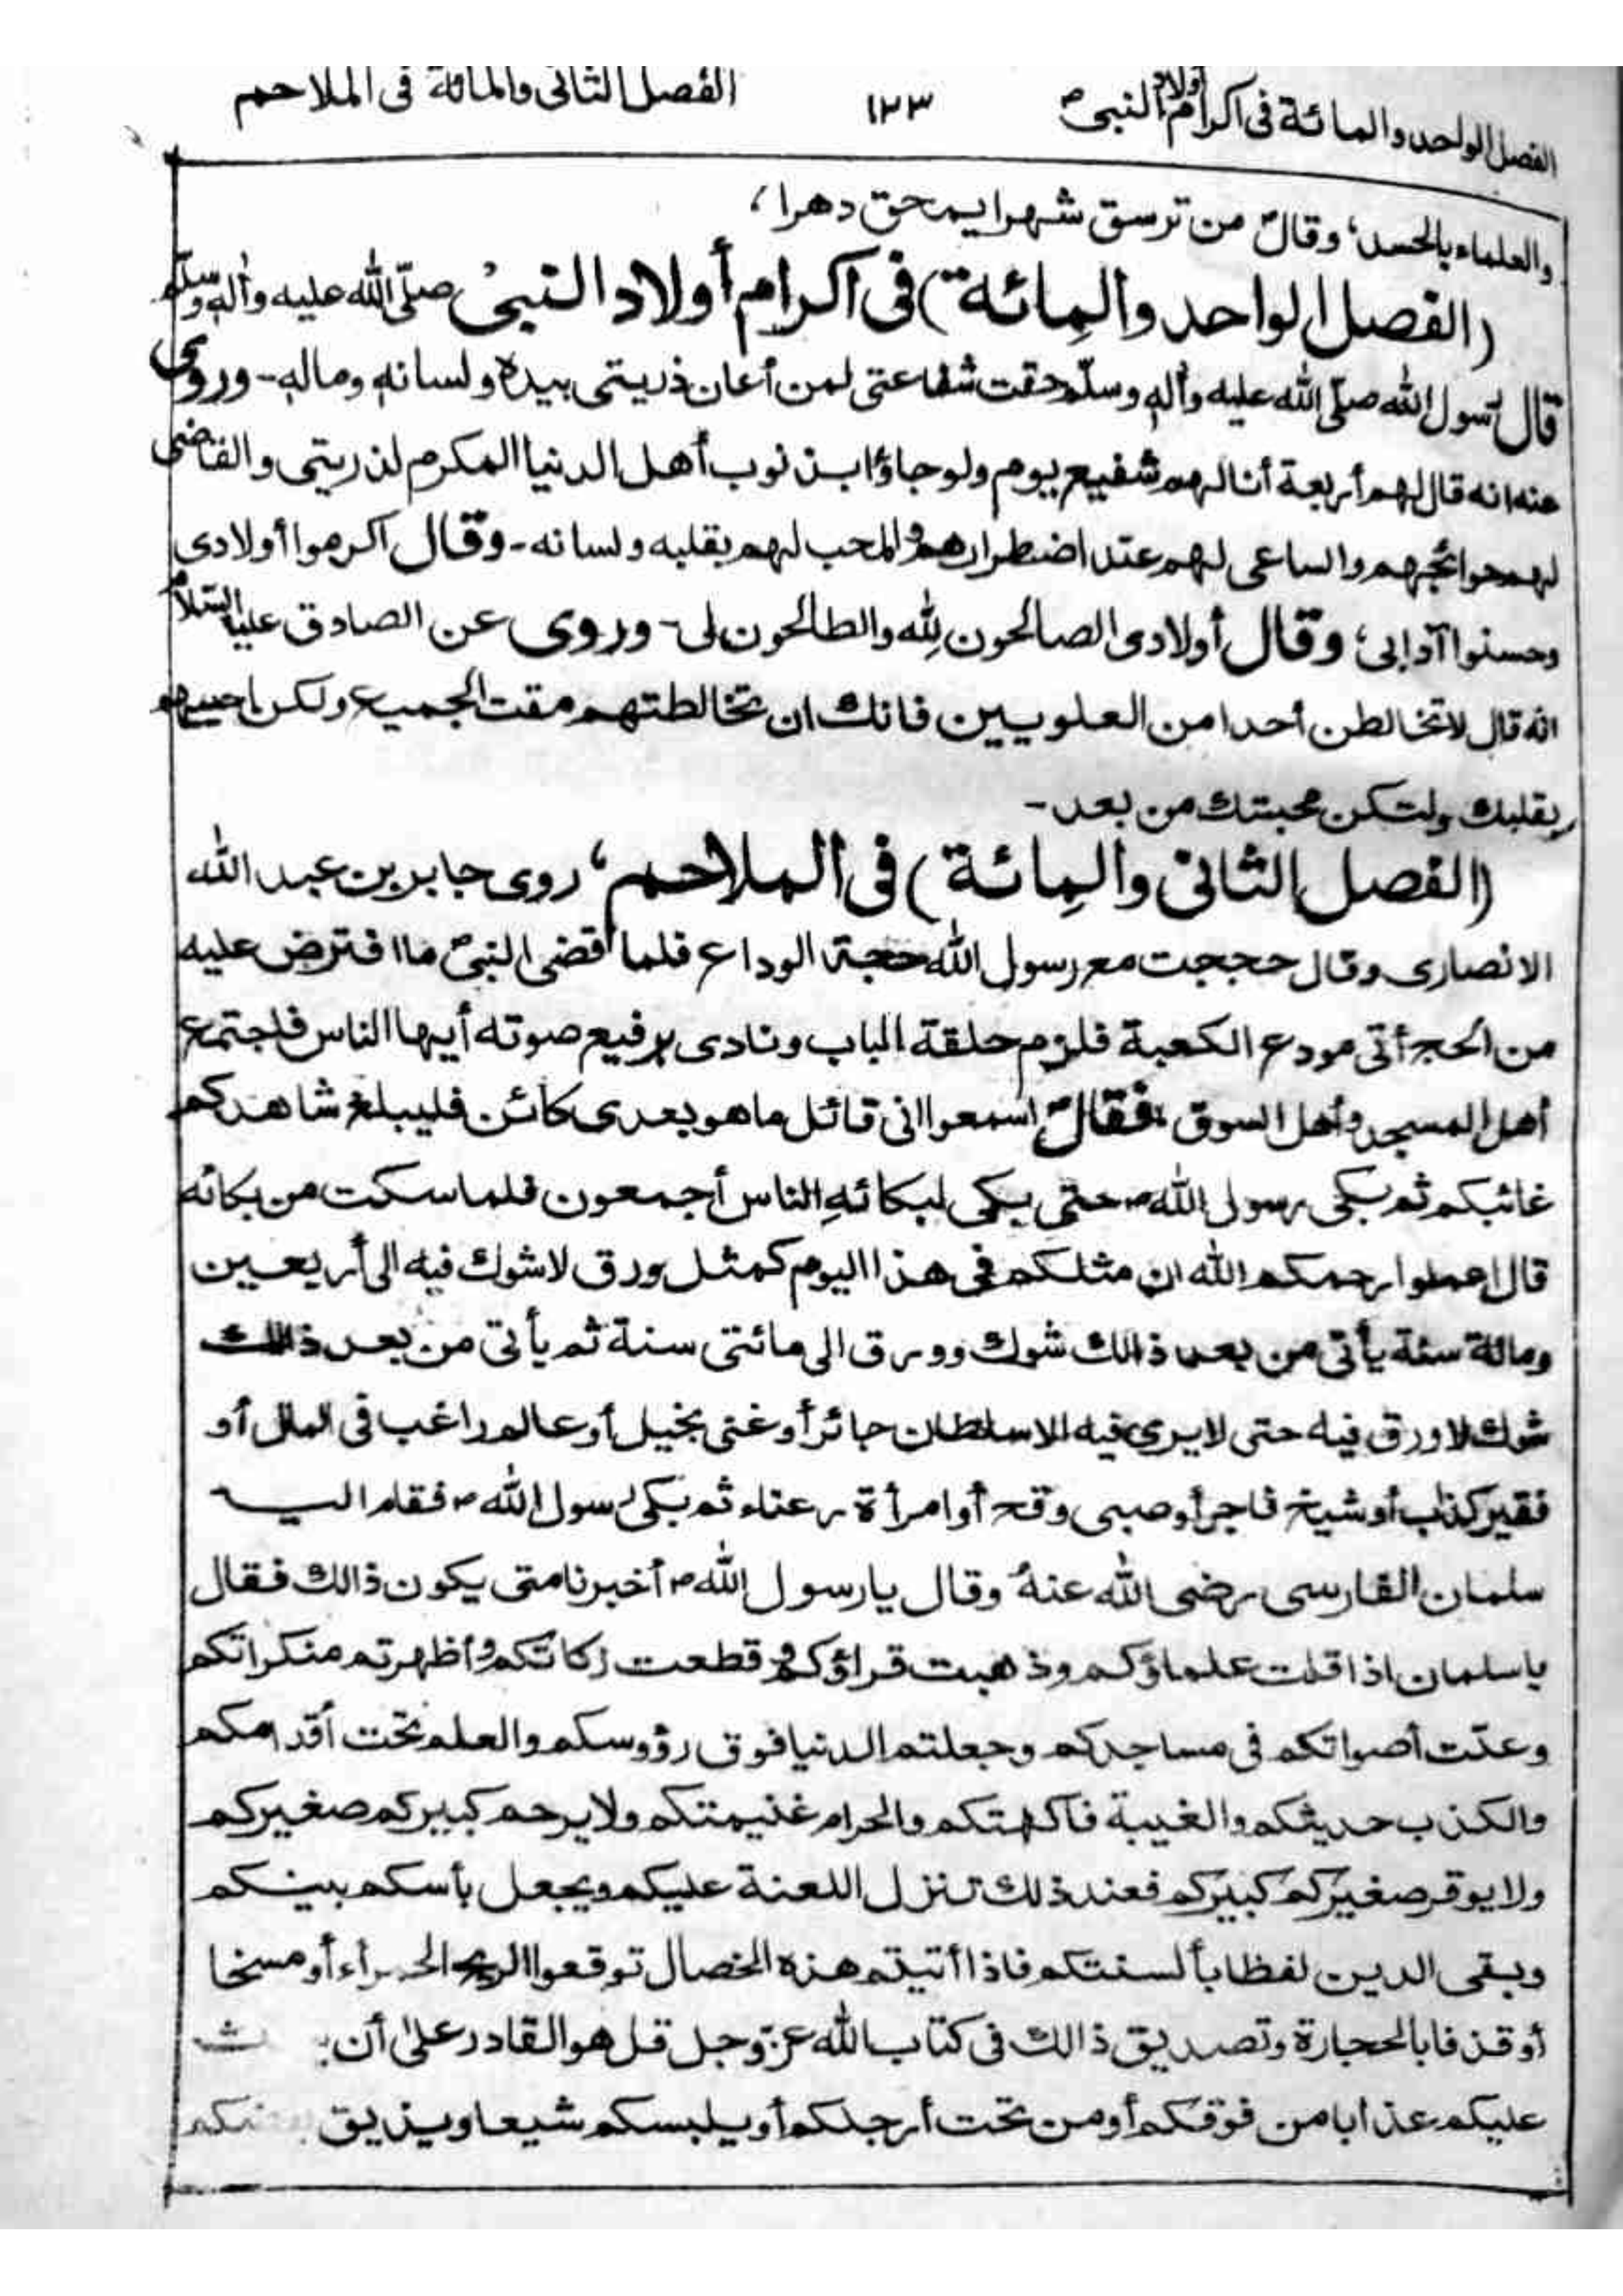 الفصل الواحد والمائة فى اكرام أولاد النبىؐ ١٢٣ الفصل الثانى والمائة فى الملاحم
والعلماء بالحسد، وقالؐ من ترسق شهرا يمحق دهرا،
(الفصل الواحد والمِائة) فى اكرام أولاد النبىؐ صلّى الله عليه وآله وسلّم
قال رسول الله صلّى الله عليه وآله وسلّم حقت شفاعتى لمن أعان ذريتى بيده ولسانه وماله - وروى
عنه انه قال لهم أربعة أنا لهم شفيع يوم ولو جاؤا بذنوب أهل الدنيا المكرم لذريتى والقاضى
لهم حوائجهم والساعى لهم عند اضطرارهم والمحب لهم بقلبه ولسانه - وقال اكرموا أولادى
وحسنوا آدابى، وقال أولادى الصالحون لله والطالحون لى - وروى عن الصادق عليه السّلام
انه قال لا تخالطن أحدا من العلويين فانك ان تخالطتهم مقت الجميع ولكن احبهم
بقلبك ولتكن محبتك من بعد -
(الفصل الثانى والمِائة) فى الملاحم، روى جابر بن عبد الله
الانصارى وقال حججت مع رسول الله حجة الوداع فلما قضى النبىؐ ما افترض عليه
من الحج أتى مودع الكعبة فلزم حلقة الباب ونادى برفيع صوته أيها الناس فاجتمع
أهل المسجد وأهل السوق، فقالؐ اسمعوا انى قائل ما هو بعدى كائن فليبلغ شاهدكم
غائبكم ثم بكى رسول اللهؐ حتى بكى لبكائهِ الناس أجمعون فلما سكت من بكائه
قال اعملوا رحمكم الله ان مثلكم فى هذا اليوم كمثل ورق لا شوك فيه الى أربعين
ومائة سنة يأتى من بعد ذالك شوك وورق الى مائتى سنة ثم يأتى من بعد ذالك
شوك لا ورق فيه حتى لا يرى فيه الا سلطان جائر أو غنى بخيل أو عالم راغب فى المال أو
فقير كذاب أو شيخ فاجر أو صبى وقح أو امرأة رعناء ثم بكى رسول اللهؐ فقام اليه
سلمان الفارسى رضى الله عنهُ وقال يا رسول اللهؐ أخبرنا متى يكون ذالك فقال
يا سلمان اذا قلت علماؤكم وذهبت قراؤكم وقطعت زكاتكم وأظهرتم منكراتكم
وعلت أصواتكم فى مساجدكم وجعلتم الدنيا فوق رؤوسكم والعلم تحت أقدامكم
والكذب حديثكم والغيبة فاكهتكم والحرام غنيمتكم ولا يرحم كبيركم صغيركم
ولا يوقر صغيركم كبيركم فعند ذلك تنزل اللعنة عليكم ويجعل بأسكم بينكم
ويبقى الدين لفظا بألسنتكم فاذا أتيتم هذه الخصال توقعوا الريح الحمراء أو مسخا
أو قذفا بالحجارة وتصديق ذالك فى كتاب الله عزّ وجل قل هو القادر على أن
عليكم عذابا من فوقكم أو من تحت أرجلكم أو يلبسكم شيعا ويذيق بعضكم